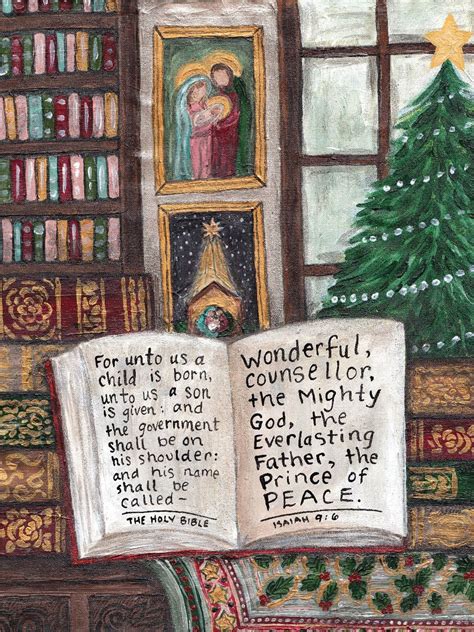 For unto us a
child is born,
unto us a son
is given: and
the government
shall be on
his shoulder:
and his name
shall be
called-
THE HOLY BIBLE
Wonderful,
counsellor,
the Mighty
God, the
Everlasting
Father, the
Prince of
PEACE.
ISAIAH 9:6